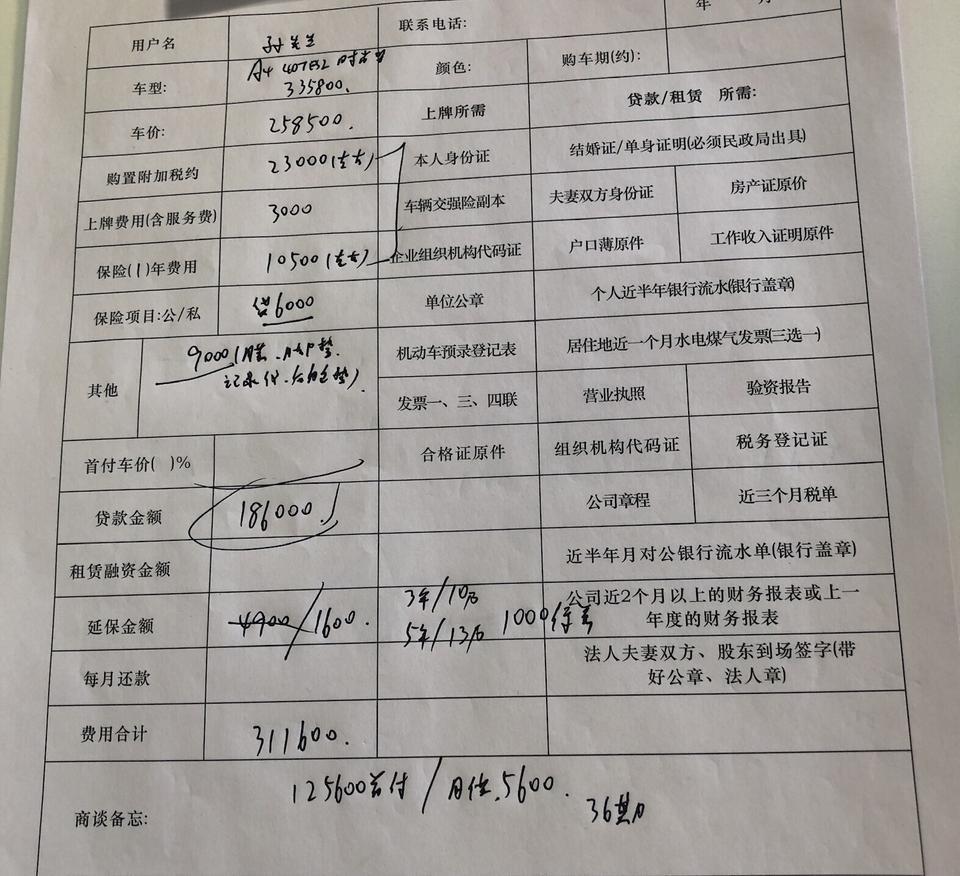 年 月
用户名 孙先生 联系电话:
车型: A4 40TFSI 时尚型 335800. 颜色: 购车期(约):
车价: 258500. 上牌所需 贷款/租赁 所需:
购置附加税约 23000 本人身份证 结婚证/单身证明(必须民政局出具)
上牌费用(含服务费) 3000 车辆交强险副本 夫妻双方身份证 房产证原价
保险(1)年费用 10500 企业组织机构代码证 户口薄原件 工作收入证明原件
保险项目:公/私 6000 单位公章 个人近半年银行流水(银行盖章)
其他 9000(膜. 脚垫. 机动车预录登记表 居住地近一个月水电煤气发票(三选一)
记录仪. 后备仓垫) 发票一、三、四联 营业执照 验资报告
首付车价( )% 合格证原件 组织机构代码证 税务登记证
贷款金额 186000. 公司章程 近三个月税单
租赁融资金额 近半年月对公银行流水单(银行盖章)
延保金额 4900/1600. 3年/10万 公司近2个月以上的财务报表或上一
5年/13万 1000 年度的财务报表
每月还款 法人夫妻双方、股东到场签字(带
好公章、法人章)
费用合计 311600.
商谈备忘: 125600首付/月供.5600.
36期